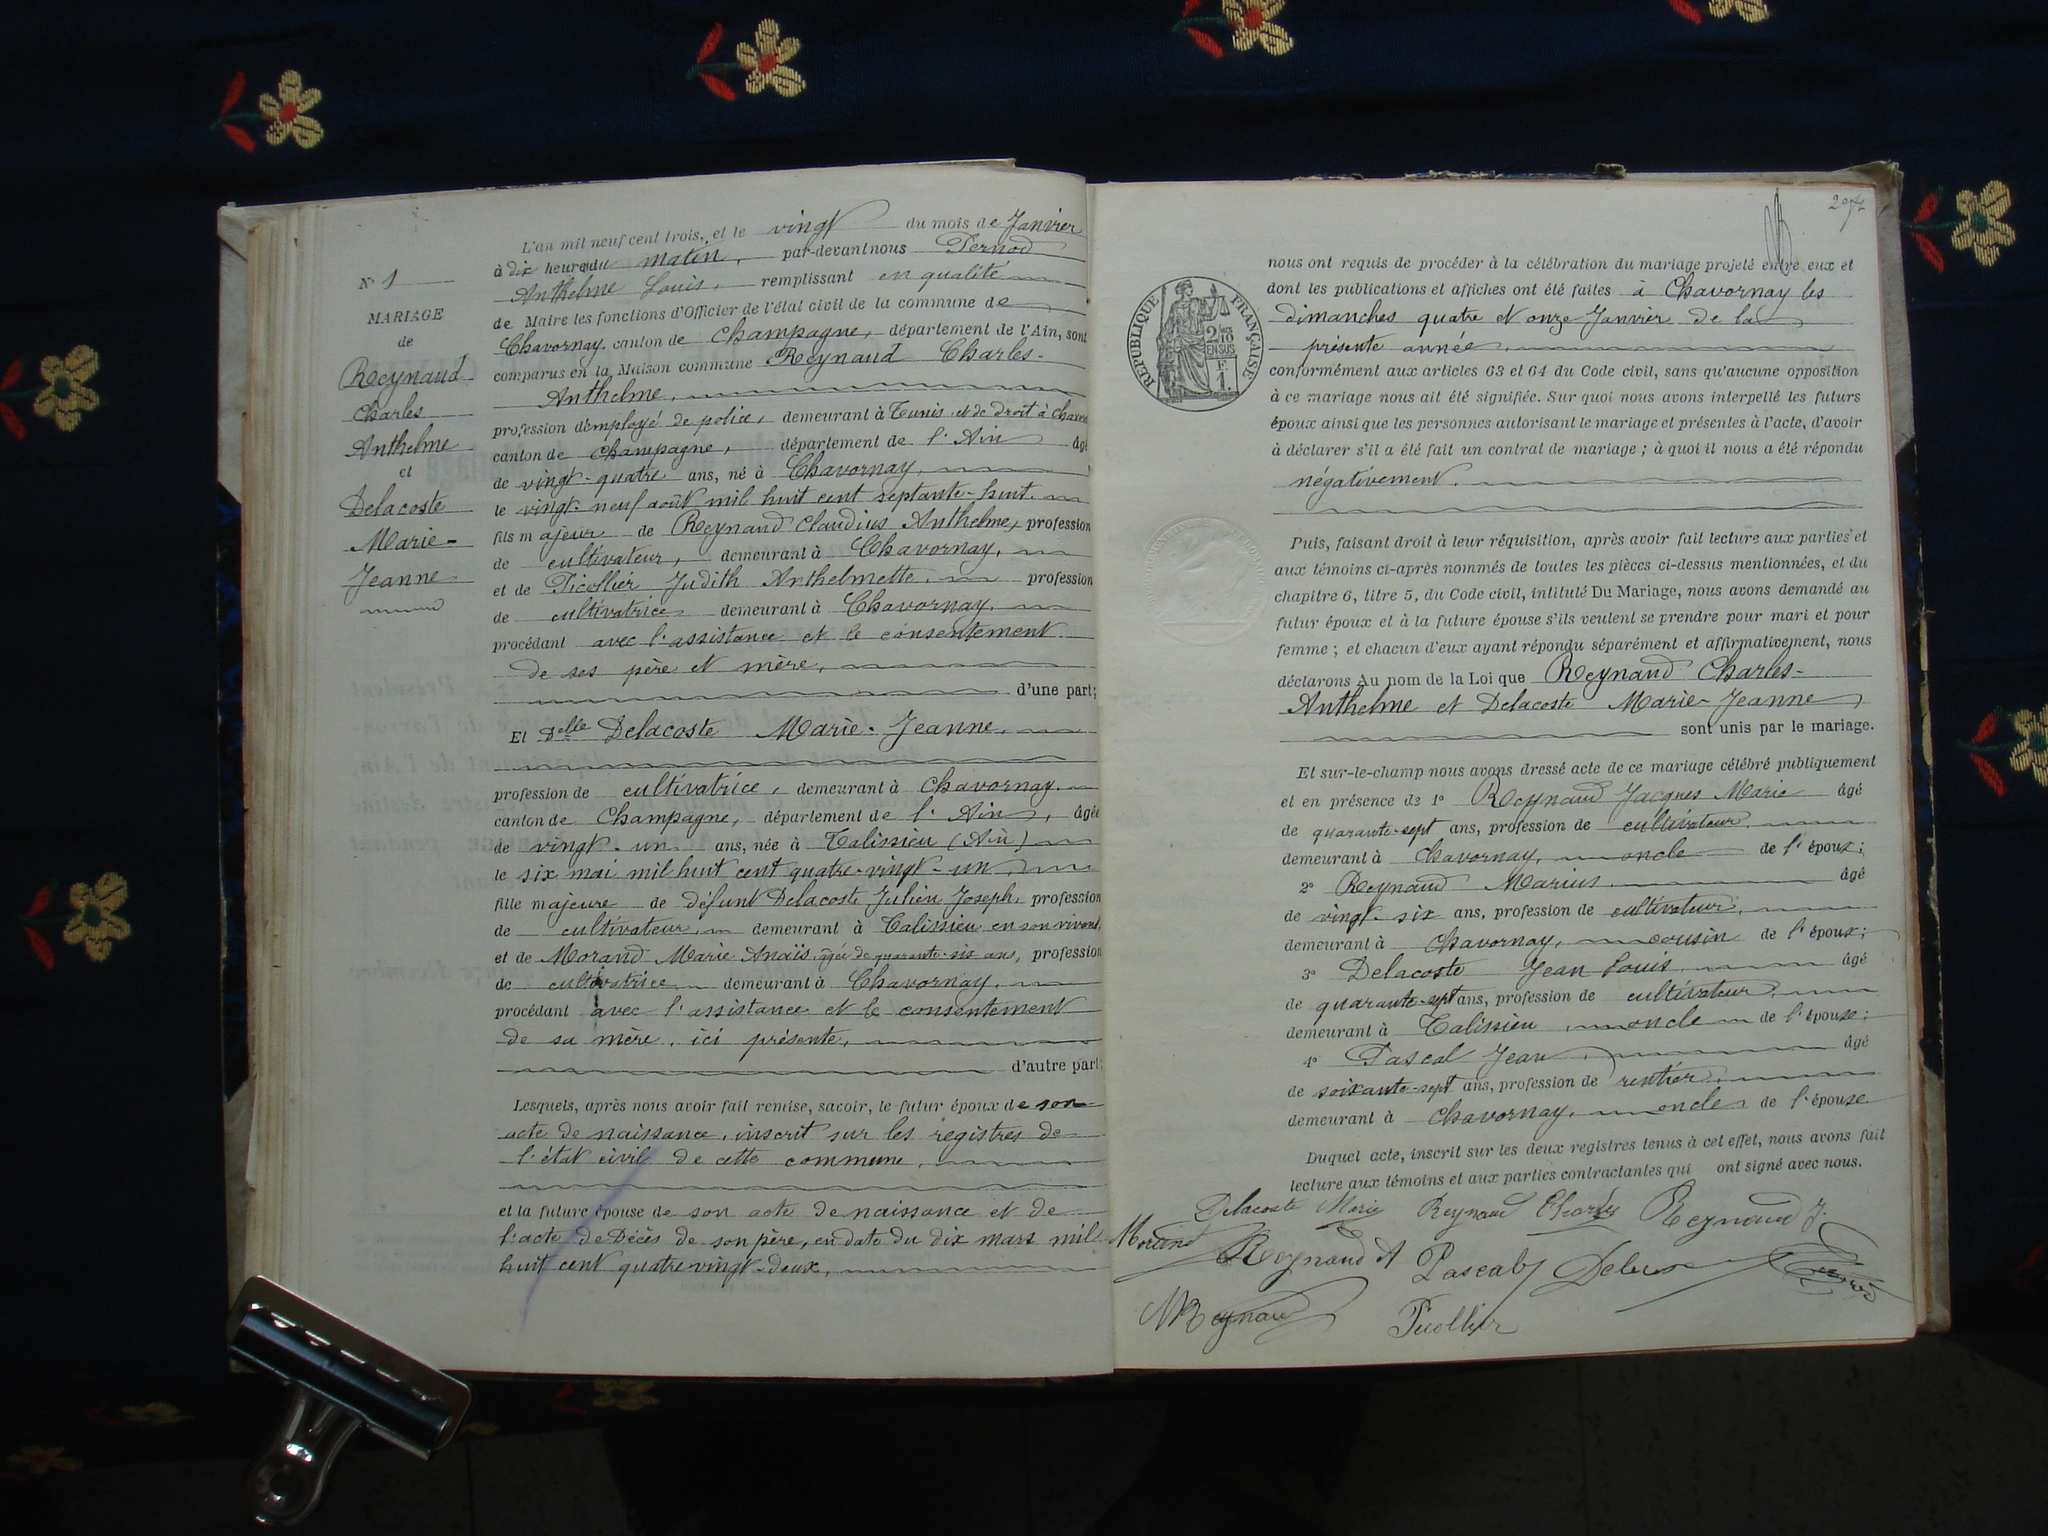 N° 1
MARIAGE
de
Reynaud
Charles
Anthelme
et
Delacoste
Marie-
Jeanne
L'an mil neuf cent trois, et le vingt du mois de Janvier
à dix heures du matin, par-devant nous Pernod
Anthelme Louis, remplissant en qualité
de Maire les fonctions d'Officier de l'état civil de la commune de
Chavornay, canton de Champagne, département de l'Ain, sont
comparus en la Maison commune Reynaud Charles-
Anthelme,
profession d'employé de police, demeurant à Tunis et de droit à
canton de Champagne, département de l'Ain âgé
de vingt-quatre ans, né à Chavornay,
le vingt-neuf août mil huit cent septante-huit
fils majeur de Reynaud Claudius Anthelme, profession
de cultivateur, demeurant à Chavornay,
et de Picollier Judith Anthelmette, profession
de cultivatrice demeurant à Chavornay,
procédant avec l'assistance et le consentement
de ses père et mère,
d'une part;
Et Delle Delacoste Marie-Jeanne,
profession de cultivatrice, demeurant à Chavornay
canton de Champagne, département de l'Ain, âgée
de vingt-un ans, née à Talissieu (Ain)
le six mai mil huit cent quatre-vingt-un,
fille majeure de défunt Delacoste Julien Joseph, profession
de cultivateur, demeurant à Talissieu en son vivant,
et de Morand Marie Anaïs, âgée de quarante-six ans, profession
de cultivatrice demeurant à Chavornay,
procédant avec l'assistance et le consentement
de sa mère, ici présente,
d'autre part;
Lesquels, après nous avoir fait remise, savoir, le futur époux de son
acte de naissance, inscrit sur les registres de
l'état civil de cette commune,
et la future épouse de son acte de naissance et de
l'acte de Décès de son père, en date du dix mars mil
huit cent quatre-vingt-deux,
RÉPUBLIQUE FRANÇAISE
2/10
EN SUS
F.
1.
nous ont requis de procéder à la célébration du mariage projeté entre eux et
dont les publications et affiches ont été faites à Chavornay les
dimanches quatre et onze Janvier de la
présente année,
conformément aux articles 63 et 64 du Code civil, sans qu'aucune opposition
à ce mariage nous ait été signifiée. Sur quoi nous avons interpellé les futurs
époux ainsi que les personnes autorisant le mariage et présentes à l'acte, d'avoir
à déclarer s'il a été fait un contrat de mariage ; à quoi il nous a été répondu
négativement.
Puis, faisant droit à leur réquisition, après avoir fait lecture aux parties et
aux témoins ci-après nommés de toutes les pièces ci-dessus mentionnées, et du
chapitre 6, titre 5, du Code civil, intitulé Du Mariage, nous avons demandé au
futur époux et à la future épouse s'ils veulent se prendre pour mari et pour
femme ; et chacun d'eux ayant répondu séparément et affirmativement, nous
déclarons Au nom de la Loi que Reynaud Charles-
Anthelme et Delacoste Marie-Jeanne
sont unis par le mariage.
Et sur-le-champ nous avons dressé acte de ce mariage célébré publiquement
et en présence de 1° Reynaud Jacques Marie âgé
de quarante-sept ans, profession de cultivateur,
demeurant à Chavornay, oncle de l'époux;
2° Reynaud Marius, âgé
de vingt-six ans, profession de cultivateur,
demeurant à Chavornay, cousin de l'époux;
3° Delacoste Jean Louis, âgé
de quarante-sept ans, profession de cultivateur,
demeurant à Talissieu, oncle de l'épouse;
4° Pascal Jean, âgé
de soixante-sept ans, profession de rentier,
demeurant à Chavornay, oncle de l'épouse
Duquel acte, inscrit sur les deux registres tenus à cet effet, nous avons fait
lecture aux témoins et aux parties contractantes qui ont signé avec nous.
Delacoste Marie Reynaud Charles Reynaud J.
Morand Reynaud A Pascal J
M Reynaud